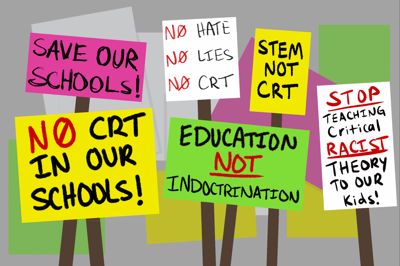 SAVE OUR
SCHOOLS!
NO HATE
NO LIES
NO CRT
STEM
NOT
CRT
NO CRT
IN OUR
SCHOOLS!
EDUCATION
NOT
INDOCTRINATION
STOP
TEACHING
Critical
RACIST
THEORY
TO OUR
Kids!